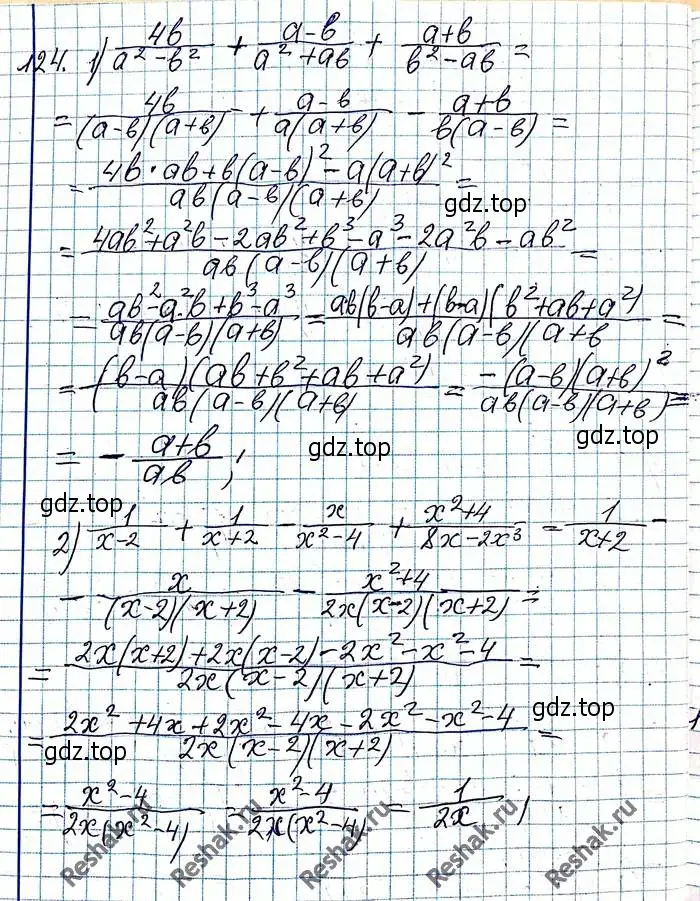 124. 1) 4b/(a² - b²) + (a-b)/(a² + ab) + (a+b)/(b² - ab) =
= 4b/((a-b)(a+b)) + (a-b)/(a(a+b)) - (a+b)/(b(a-b)) =
= (4b·ab + b(a-b)² - a(a+b)²)/(ab(a-b)(a+b)) =
gdz.top
= (4ab² + a²b - 2ab² + b³ - a³ - 2a²b - ab²)/(ab(a-b)(a+b)) =
= (ab² - a²b + b³ - a³)/(ab(a-b)(a+b)) = (ab(b-a) + (b-a)(b² + ab + a²))/(ab(a-b)(a+b =
= ((b-a)(ab + b² + ab + a²))/(ab(a-b)(a+b)) = (-(a-b)(a+b)²)/(ab(a-b)(a+b)) =
= - (a+b)/(ab) ;
gdz.top
gdz.top
gdz.top
2) 1/(x-2) + 1/(x+2) - x/(x²-4) + (x²+4)/(8x-2x³) = 1/(x+2) -
- x/((x-2)(x+2)) - (x²+4)/(2x(x-2)(x+2)) =
= (2x(x+2) + 2x(x-2) - 2x² - x² - 4)/(2x(x-2)(x+2)) =
= (2x² + 4x + 2x² - 4x - 2x² - x² - 4)/(2x(x-2)(x+2)) =
gdz.top
gdz.top
= (x²-4)/(2x(x²-4)) = (x²-4)/(2x(x²-4)) = 1/(2x) ;
Reshak.ru Reshak.ru Reshak.ru Reshak.ru Reshak.ru